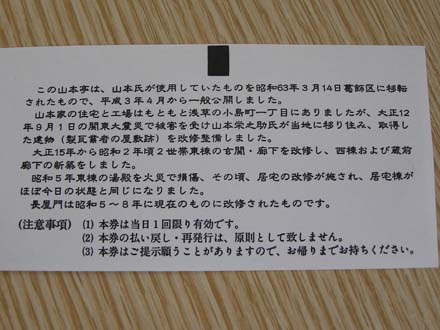 この山本亭は、山本氏が使用していたものを昭和63年３月14日葛飾区に移転
されたもので、平成３年４月から一般公開しました。
山本家の住宅と工場はもともと浅草の小島町一丁目にありましたが、大正12
年９月１日の関東大震災で被害を受け山本栄之助氏が当地に移り住み、取得し
た建物（製瓦業者の屋敷跡）を改修整備しました。
大正15年から昭和２年頃２世帯東棟の玄関・廊下を改修し、西棟および蔵前
廊下の新築をしました。
昭和５年東棟の湯殿を火災で損傷、その頃、居宅の改修が施され、居宅棟が
ほぼ今日の状態と同じになりました。
長屋門は昭和５〜８年に現在のものに改修されたものです。
(注意事項) (1) 本券は当日１回限り有効です。
(2) 本券の払い戻し・再発行は、原則として致しません。
(3) 本券はご提示願うことがありますので、お帰りまでお持ちください。